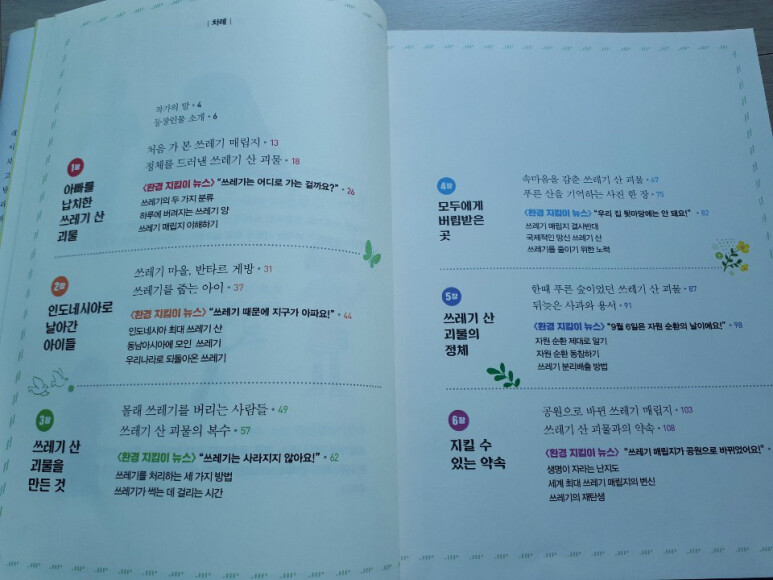 차례
작가의 말 • 4
등장인물 소개 • 6
1장
아빠를
납치한
쓰레기 산
괴물
처음 가 본 쓰레기 매립지 • 13
정체를 드러낸 쓰레기 산 괴물 • 18
<환경 지킴이 뉴스> "쓰레기는 어디로 가는 걸까요?" • 26
쓰레기의 두 가지 분류
하루에 버려지는 쓰레기 양
쓰레기 매립지 이해하기
2장
인도네시아로
날아간
아이들
쓰레기 마을, 반타르 게방 • 31
쓰레기를 줍는 아이 • 37
<환경 지킴이 뉴스> "쓰레기 때문에 지구가 아파요!" • 44
인도네시아 최대 쓰레기 산
동남아시아에 모인 쓰레기
우리나라로 되돌아온 쓰레기
3장
쓰레기 산
괴물을
만든 것
몰래 쓰레기를 버리는 사람들 • 49
쓰레기 산 괴물의 복수 • 57
<환경 지킴이 뉴스> "쓰레기는 사라지지 않아요!" • 62
쓰레기를 처리하는 세 가지 방법
쓰레기가 썩는 데 걸리는 시간
4장
모두에게
버림받은
곳
속마음을 감춘 쓰레기 산 괴물 • 67
푸른 산을 기억하는 사진 한 장 • 75
<환경 지킴이 뉴스> "우리 집 뒷마당에는 안 돼요!" • 82
쓰레기 매립지 결사반대
국제적인 망신 쓰레기 산
쓰레기를 줄이기 위한 노력
5장
쓰레기 산
괴물의
정체
한때 푸른 숲이었던 쓰레기 산 괴물 • 87
뒤늦은 사과와 용서 • 91
<환경 지킴이 뉴스> "9월 6일은 자원 순환의 날이에요!" • 98
자원 순환 제대로 알기
자원 순환 동참하기
쓰레기 분리배출 방법
6장
지킬 수
있는 약속
공원으로 바뀐 쓰레기 매립지 • 103
쓰레기 산 괴물과의 약속 • 108
<환경 지킴이 뉴스> "쓰레기 매립지가 공원으로 바뀌었어요!" •
생명이 자라는 난지도
세계 최대 쓰레기 매립지의 변신
쓰레기의 재탄생